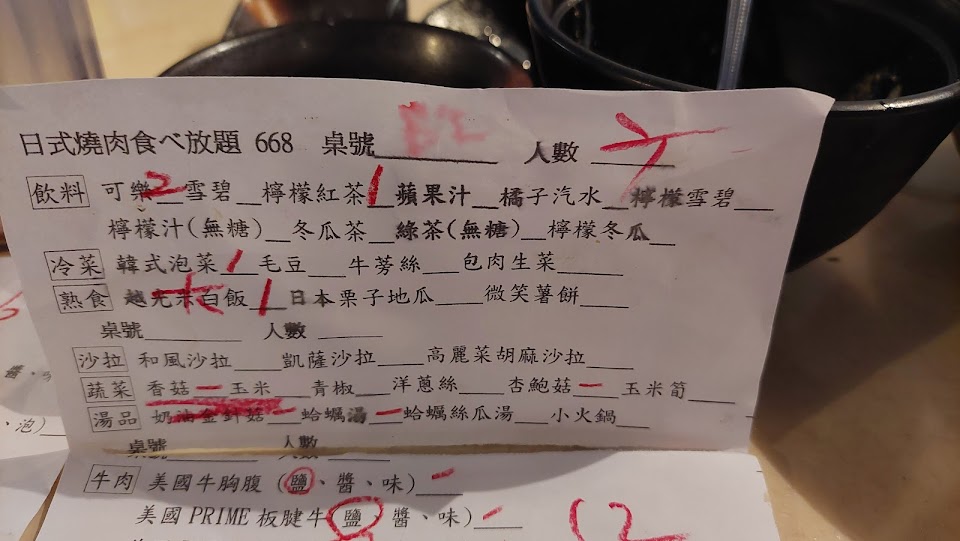 日式燒肉食べ放題 668 桌號______ 人數____
飲料 可樂2 雪碧__檸檬紅茶1 蘋果汁__橘子汽水__檸檬雪碧___
檸檬汁(無糖)__冬瓜茶__綠茶(無糖)__檸檬冬瓜__
冷菜 韓式泡菜 / 毛豆___牛蒡絲___包肉生菜_____
熟食 越光米白飯 大 / 日本栗子地瓜____微笑薯餅____
桌號________ 人數______
沙拉 和風沙拉____凱薩沙拉____高麗菜胡麻沙拉____
蔬菜 香菇 一 玉米___青椒___洋蔥絲___杏鮑菇 一 玉米筍____
湯品 奶油金針菇 一 蛤蠣湯 一 蛤蠣絲瓜湯___小火鍋___
桌號 人數
牛肉 美國牛胸腹(鹽、醬、味) 一
美國 PRIME 板腱牛(鹽、醬、味) 一